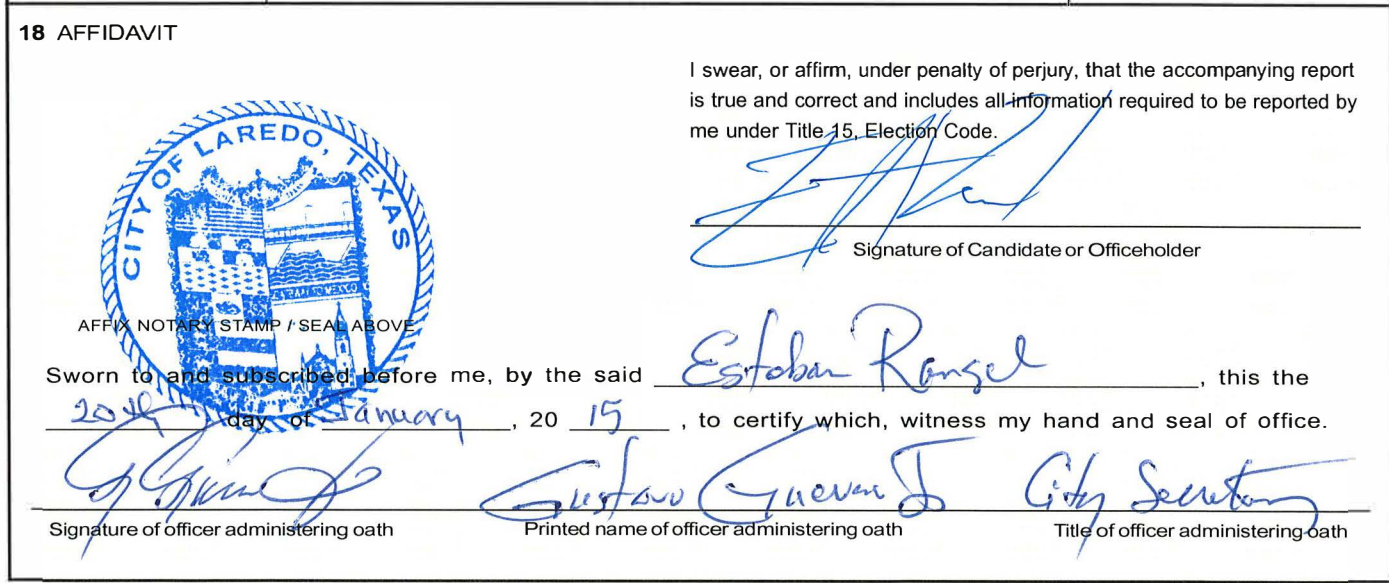 18 AFFIDAVIT
I swear, or affirm, under penalty of perjury, that the accompanying report
is true and correct and includes all information required to be reported by
me under Title 15, Election Code.
CITY OF LAREDO, TEXAS
Signature of Candidate or Officeholder
AFFIX NOTARY STAMP / SEAL ABOVE
Sworn to and subscribed before me, by the said Esteban Rangel, this the
20th day of January, 20 15, to certify which, witness my hand and seal of office.
Gustavo Guevara Jr City Secretary
Signature of officer administering oath Printed name of officer administering oath Title of officer administering oath